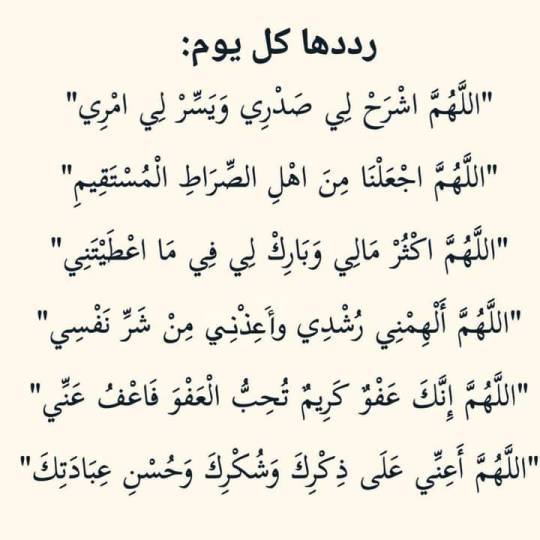 رددها كل يوم:
"اللَّهُمَّ اشْرَحْ لِي صَدْرِي وَيَسِّرْ لِي امْرِي"
"اللَّهُمَّ اجْعَلْنَا مِنَ اهْلِ الصِّرَاطِ الْمُسْتَقِيمِ"
"اللَّهُمَّ اكْثُرْ مَالِي وَبَارِكْ لِي فِي مَا اعْطَيْتَنِي"
"اللَّهُمَّ أَلْهِمْنِي رُشْدِي وأَعِذْنِي مِنْ شَرِّ نَفْسِي"
"اللَّهُمَّ إِنَّكَ عَفْوٌ كَرِيمٌ تُحِبُّ الْعَفْوَ فَاعْفُ عَنِّي"
"اللَّهُمَّ أَعِنِّي عَلَى ذِكْرِكَ وَشُكْرِكَ وَحُسْنِ عِبَادَتِكَ"